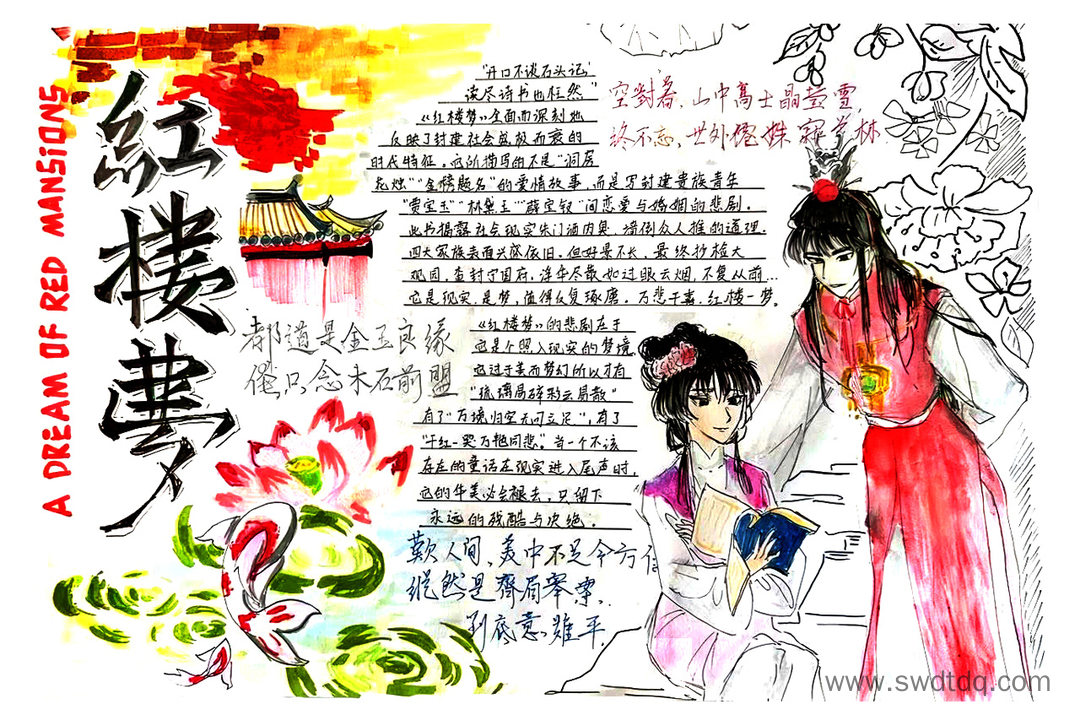 A DREAM OF RED MANSIONS
紅楼夢
"开口不谈石头记,
读尽诗书也枉然"
《红楼梦》全面而深刻地
反映了封建社会盛极而衰的
时代特征。它所描写的不是"洞房
花烛""金榜题名"的爱情故事,而是写封建贵族青年
"贾宝玉""林黛玉""薛宝钗"间恋爱与婚姻的悲剧。
此书揭露社会现实朱门酒肉臭,墙倒众人推的道理,
四大家族表面兴盛依旧,但好景不长,最终抄检大
观园,查封宁国府,浮华尽散如过眼云烟,不复从前...
它是现实,是梦,值得反复琢磨。万悲千喜,红楼一梦。
空對着,山中高士晶莹雪,
终不忘,世外仙姝寂寞林.
都道是金玉良缘
俺只念木石前盟
《红楼梦》的悲剧在于
它是个照入现实的梦境
它过于美而梦幻所以才有
"琉璃易碎彩云易散"
有了"万境归空无可立足",有了
"千红一哭万艳同悲。"当一个不该
存在的童话在现实进入尾声时,
它的华美必会褪去,只留下
永远的残酷与决绝。
歎人间,美中不足今方信
縱然是齊眉举案,
到底意难平.
www.swdtdq.com